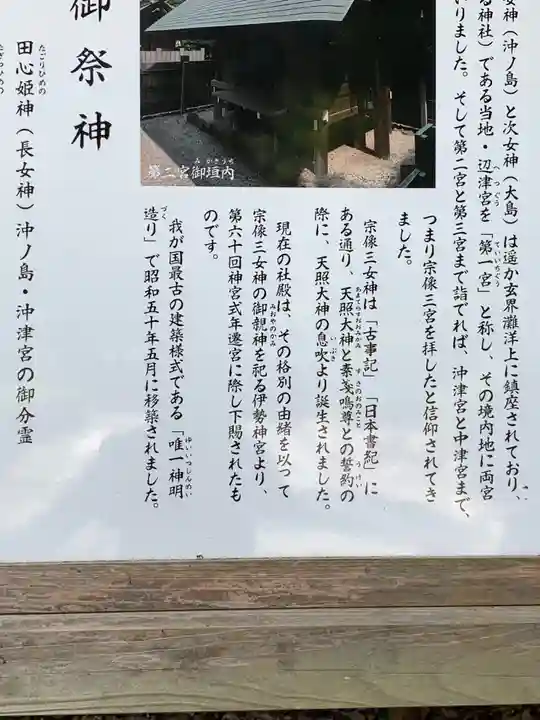 女神（沖ノ島）と次女神（大島）は遥か玄界灘洋上に鎮座されており、
る神社）である当地・辺津宮を「第一宮」と称し、その境内地に両宮
いりました。そして第二宮と第三宮まで詣でれば、沖津宮と中津宮まで、
つまり宗像三宮を拝したと信仰されてき
ました。
宗像三女神は「古事記」「日本書紀」に
ある通り、天照大神と素戔嗚尊との誓約の
際に、天照大神の息吹より誕生されました。
現在の社殿は、その格別の由緒を以って
宗像三女神の御親神を祀る伊勢神宮より、
第六十回神宮式年遷宮に際し下賜されたも
のです。
我が国最古の建築様式である「唯一神明
造り」で昭和五十年五月に移築されました。
第三宮御垣内
御祭神
田心姫神（長女神）沖ノ島・沖津宮の御分霊